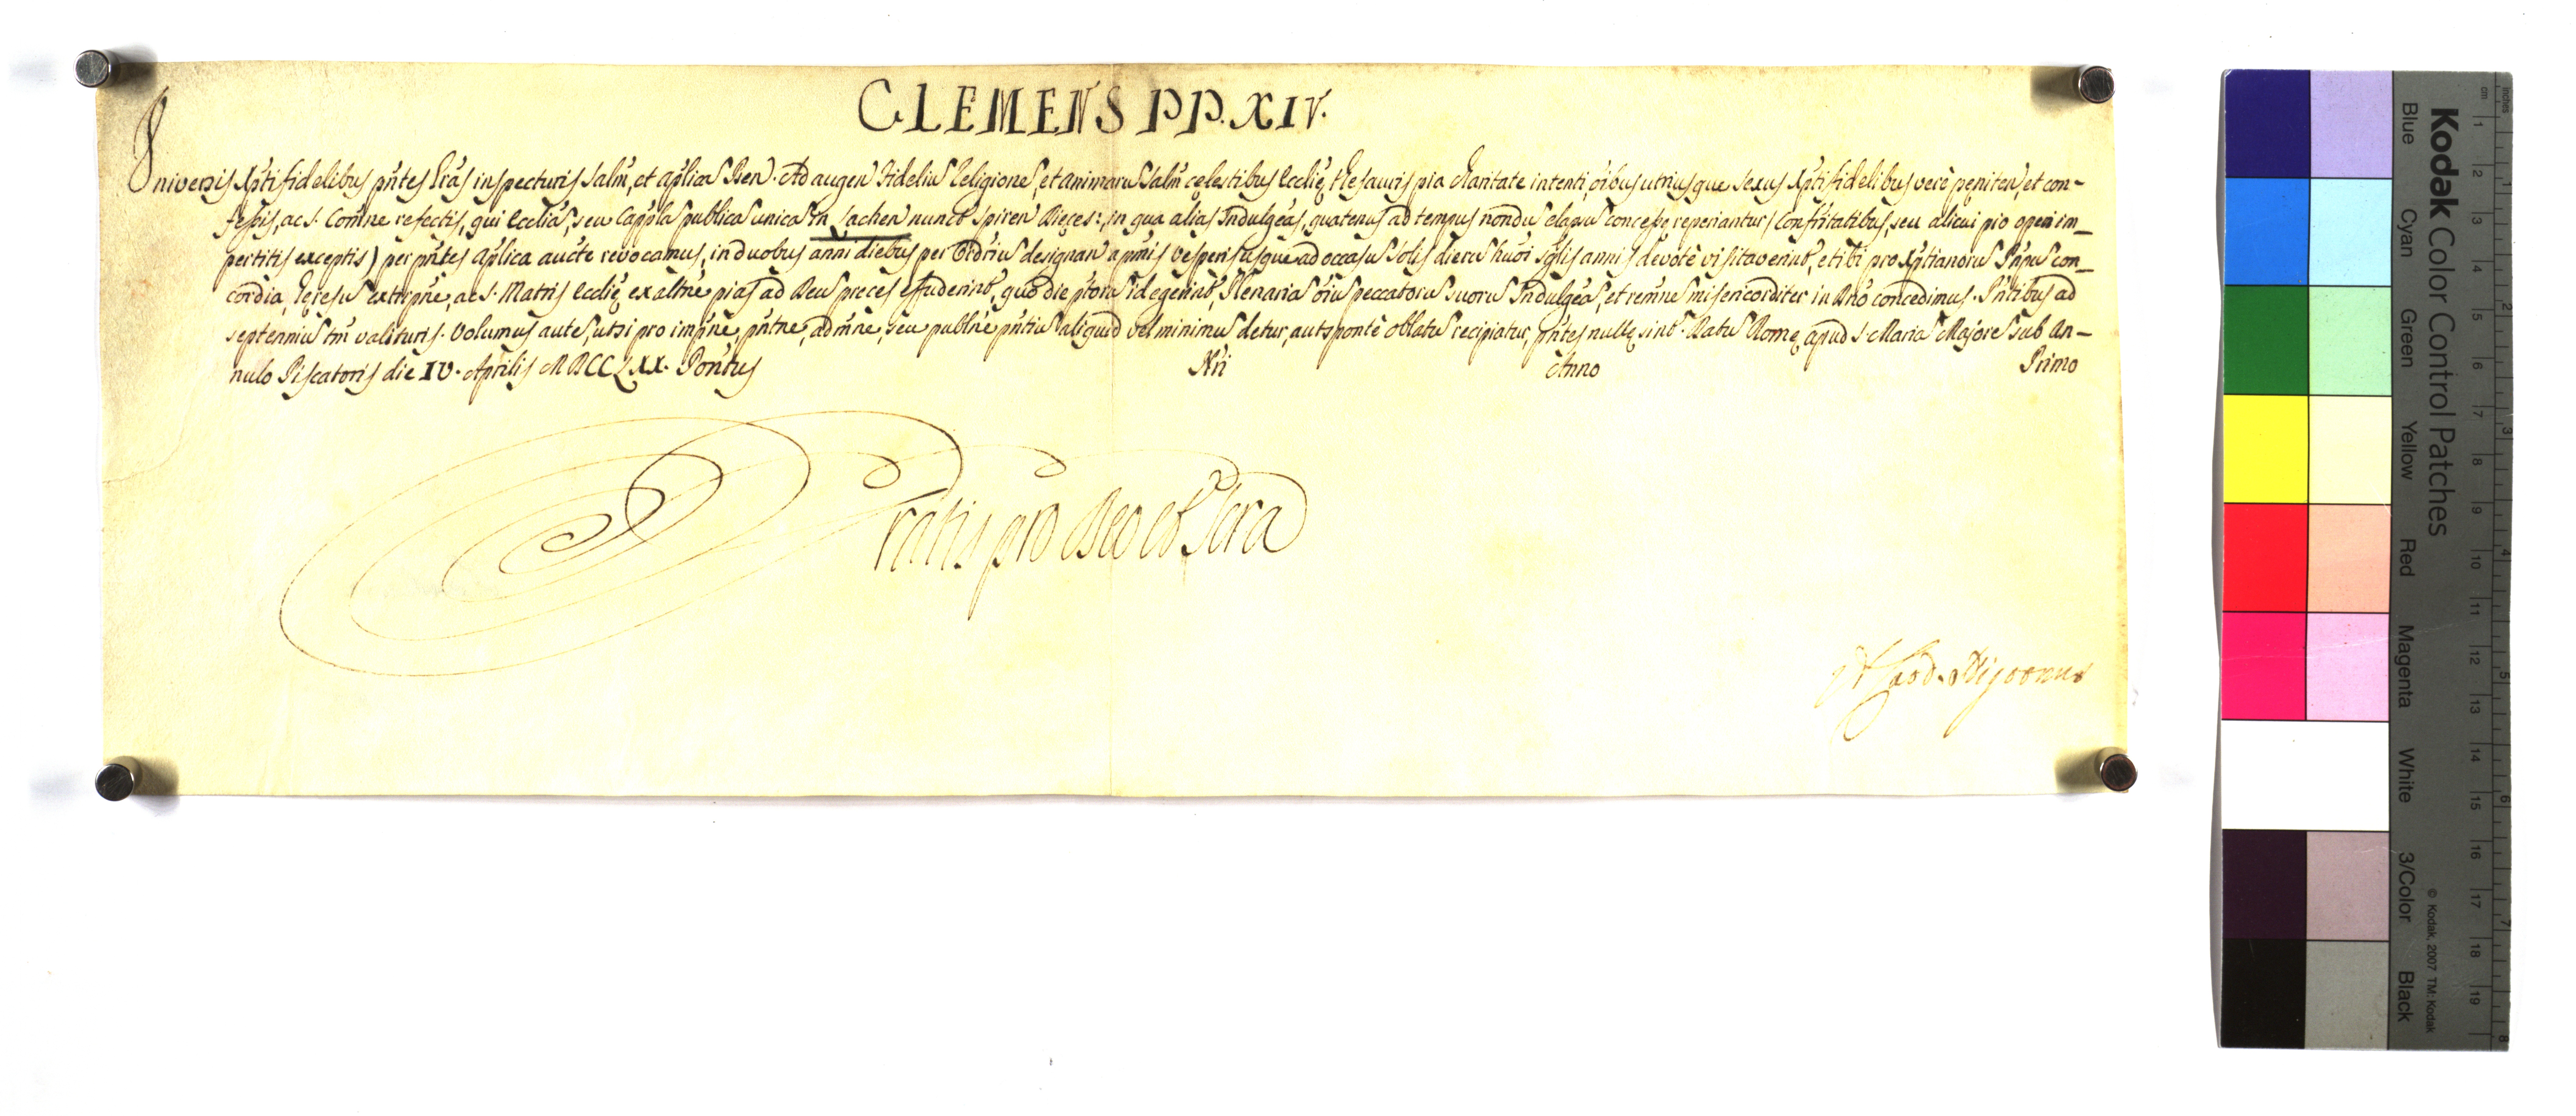 CLEMENS PP. XIV.
Universis Xpti fidelibus pn̄tes Lr̄as inspecturis Salm̄, et ap̄licam Ben. Ad augen Fideliū Religionē, et animarū Salm̄ cęlestibus Eccl̄ię Thesauris pia Charitate intenti, oībus utriusque sexus Xpti fidelibus verè pęniten, et con-
fessis, ac S. Com̄ne refectis, qui Eccl̄iā, seu Cappl̄a publicā unicā in Lachen nunct Spiren Dięces:, in qua alias Indulgēa, quatenus ad tempus nondū elapsū concessę reperiantur / Confrītatibus, seu alicui pio operi im_
pertitis exceptis) per pn̄tes ap̄lica aucte revocamus, in duobus anni diebus per Ordriū designan a prīis vesperis usque ad occasū Solis dierū huōi sglis annis devotè visitaverint, et ibi pro Xptianorū Pnp̄ū con_
cordia, hęresū extirp̄ne, ac S. Matris Eccl̄ię exaltn̄e pias ad Deū preces effuderint, quo die pt̄orū id egerint, Plenariā oīū peccatorū suorū Indulgēa, et remn̄e misericorditer in Dn̄o concedimus. Pn̄tibus ad
septenniū tm̄ valituris. Volumus autē, ut si pro impn̄e, pn̄tne, admn̄e, seu publn̄e pn̄tiū aliquid vel minimū detur, aut sponte oblatū recipiatur, pn̄tes nullę sint. Datū Romę apud S. Mariā Majorē sub An-
nulo Piscatoris die IV. Aprilis MDCCLXX. Pontus Nri Anno Primo
Gratis pro Deo et Scra